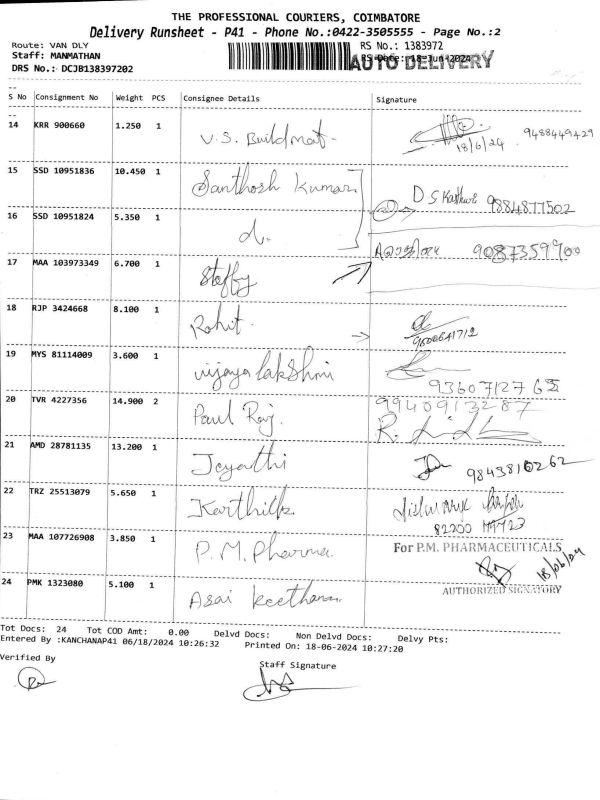 THE PROFESSIONAL COURIERS, COIMBATORE
Delivery Runsheet - P41 - Phone No.:0422-3505555 - Page No.:2
Route: VAN DLY
RS No.: 1383972
Staff: MANMATHAN
RS Date: 18-Jun-2024
AUTO DELIVERY
DRS No.: DCJB138397202
S No Consignment No Weight PCS Consignee Details Signature
14 KRR 900660 1.250 1 V.S. Buildmat 18/6/24 9488449429
15 SSD 10951836 10.450 1 Santhosh Kumar D S Kasthuri 9884877502
16 SSD 10951824 5.350 1 d.
9087359900
17 MAA 103973349 6.700 1 Steffy
18 RJP 3424668 8.100 1 Rohit 9600641712
19 MYS 81114009 3.600 1 vijaya lakshmi 9360712765
20 TVR 4227356 14.900 2 Paul Raj. 9940913287
21 AMD 28781135 13.200 1 Jeyathi 9843810262
22 TRZ 25513079 5.650 1 Karthik 82200
23 MAA 107726908 3.850 1 P.M. Pharma
For P.M. PHARMACEUTICALS
18/06/24
AUTHORIZED SIGNATORY
24 PMK 1323080 5.100 1 Asai Keethanai
Tot Docs: 24 Tot COD Amt: 0.00 Delvd Docs: Non Delvd Docs: Delvy Pts:
Entered By :KANCHANAP41 06/18/2024 10:26:32 Printed On: 18-06-2024 10:27:20
Verified By
Staff Signature